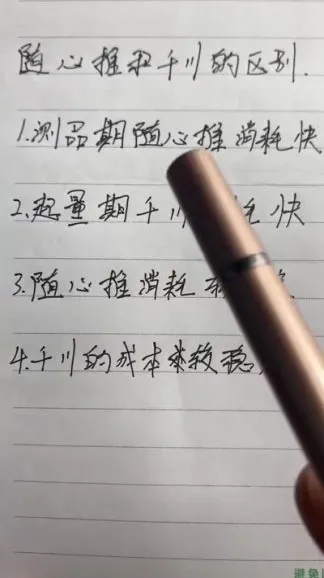 随心推和千川的区别.
1.测品期随心推消耗快
2.起量期千川耗快
3.随心推消耗
4.千川的成本来较稳
避免